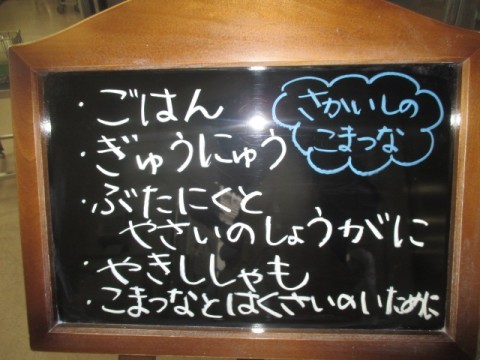 さかいしの
こまつな
・ごはん
・ぎゅうにゅう
・ぶたにくと
やさいのしょうがに
・やきししゃも
・こまつなとはくさいのいために